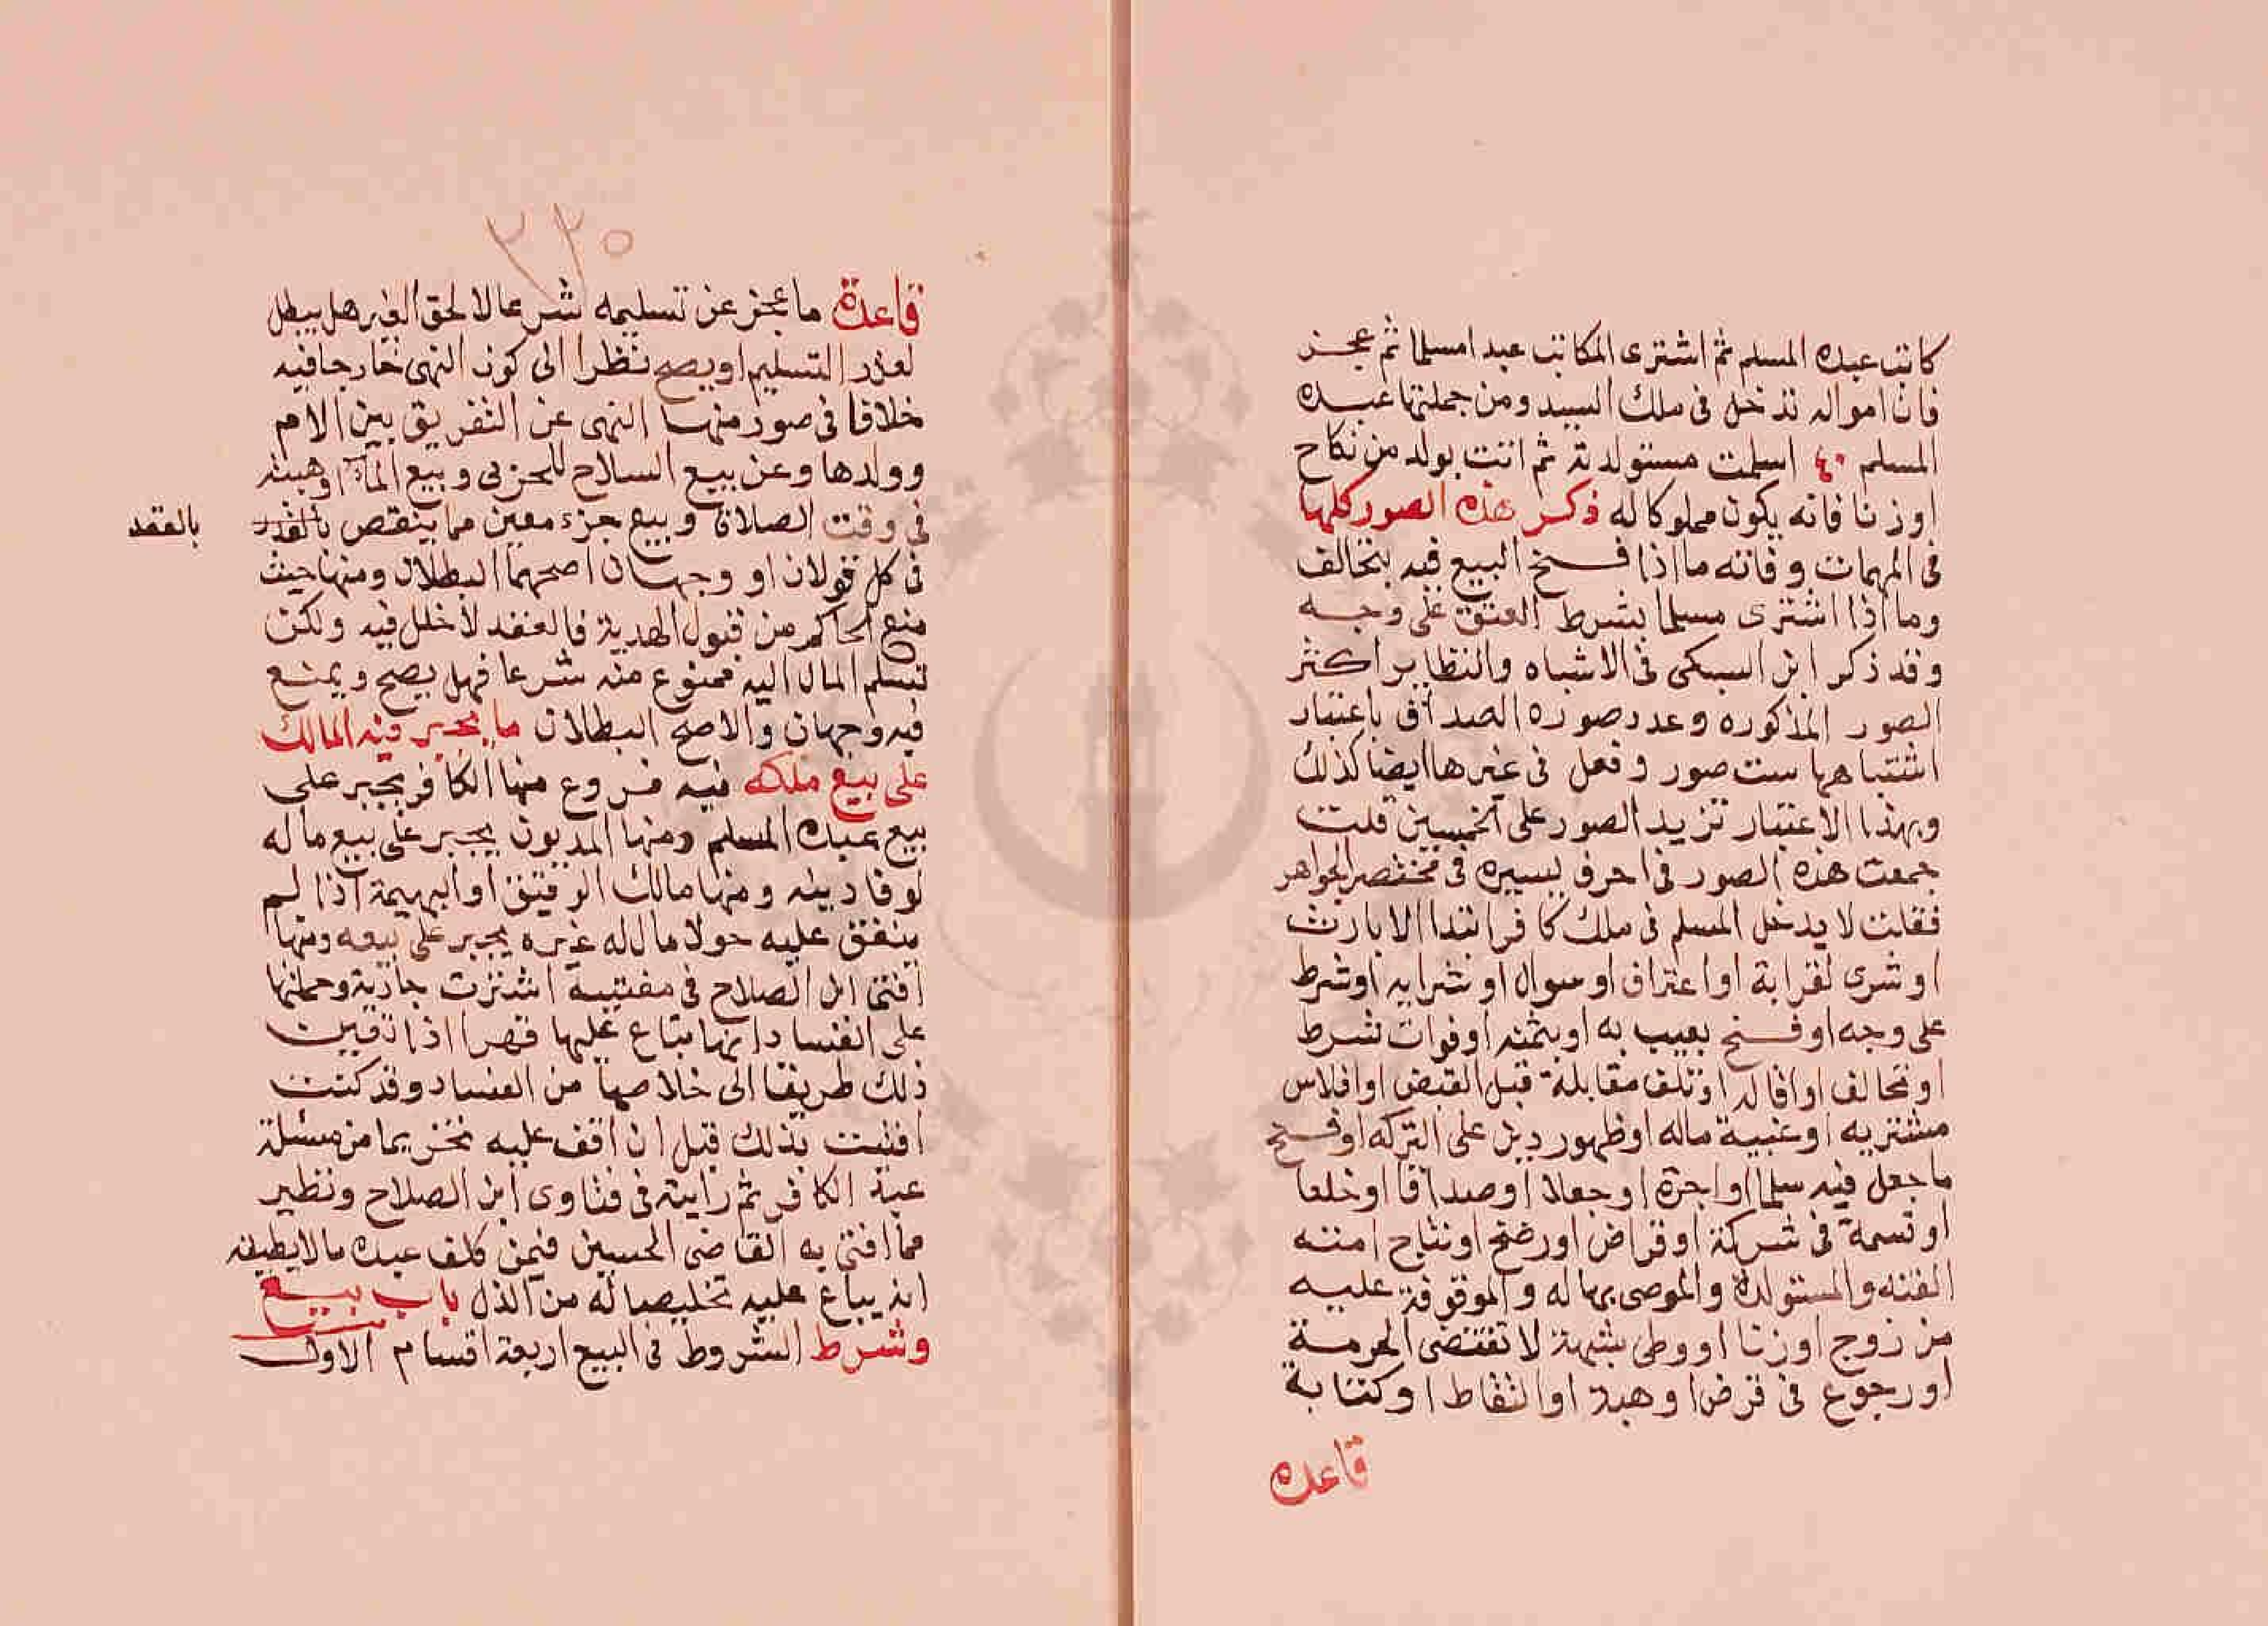 كاتب عبده المسلم ثم اشترى المكاتب عبدا مسلما ثم عجز
فان امواله تدخل فى ملك السيد ومن جملتها عبده
المسلم اسلمت مستولدته ثم اتت بولد من نكاح
اوزنا فانه يكون مملوكا له ذكر هذه الصور كلها
فى المهمات وفاته ما اذا فسخ البيع فيه بتخالف
وما اذا اشترى مسلما بشرط العتق على وجه
وقد ذكر ابن السبكى فى الاشباه والنظاير اكثر
الصور المذكوره وعدد صوره الصداق باعتبار
اشتباهها ست صور وفعل فى غيرها ايضا كذلك
وبهذا الاعتبار تزيد الصور على الخمسين قلت
جمعت هذه الصور فى احرف يسيره فى مختصر الجواهر
فقلت لا يدخل المسلم فى ملك كافر ابتدا الا بارث
او شرى لقرابة او اعتراف او سوال او شرايه اوشرط
على وجه او فسخ بعيب به او بثمنه اوفوات شرط
او تحالف او اقاله او تلف مقابلة قبل القبض او افلاس
مشتريه او غيبة ماله اوظهور دين على التركه اوفسخ
ما جعل فيه سلما او اجرة او جعلا او صداقا او خلعا
او قسمة فى شركة او قراض اورضخ او نتاج امته
القنه والمستولدة والموصى بها له والموقوفة عليه
من زوج اوزنا اووطى بشبهة لا تقتضى الحرمة
او رجوع فى قرض او هبة او التقاط او كتابة
قاعده
٢٢٥
قاعدة ما عجز عن تسليمه شرعا لا لحق الغير هل يبطل
لعذر التسليم اويصح نظرا الى كون النهى خارجا فيه
خلافا فى صور منها النهى عن التفريق بين الام
وولدها وعن بيع السلاح للحربى وبيع الماء او هبته
فى وقت الصلاة وبيع جزء معين مما ينقص بالقدر
بالعقد
فى كل قولان او وجهان اصحهما البطلان ومنها حيث
منع الحاكم من قبول الهدية فالعقد لا خلل فيه ولكن
تسلم المال اليه فممنوع منه شرعا فهل يصح ويمنع
فيه وجهان والاصح البطلان ما يجبر فيه المالك
على بيع ملكه فيه فروع منها الكافر يجبر على
بيع عبده المسلم ومنها المديون يجبر على بيع ماله
لوفا دينه ومنها مالك الرقيق او البهيمة اذا لم
ينفق عليه حولا مال له غيره يجبر على بيعه ومنها
افتى ابن الصلاح فى مغنية اشترت جارية وحملتها
على الفساد انها تباع عليها قهرا اذا تعين
ذلك طريقا الى خلاصها من الفساد وقد كنت
افتيت بذلك قبل ان اقف عليه تخريجا من مسئلة
عبد الكافر ثم رايته فى فتاوى ابن الصلاح ونظير
مما افتى به القاضى الحسين فيمن كلف عبده ما لا يطيقه
انه يباع عليه تخليصا له من الذل باب بيع
وشرط الشروط فى البيع اربعة اقسام الاول